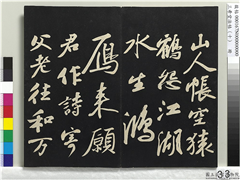 山人帳空猿
鶴怨江湖
水生鴻
雁来願
君作詩寄
父老往和万
33